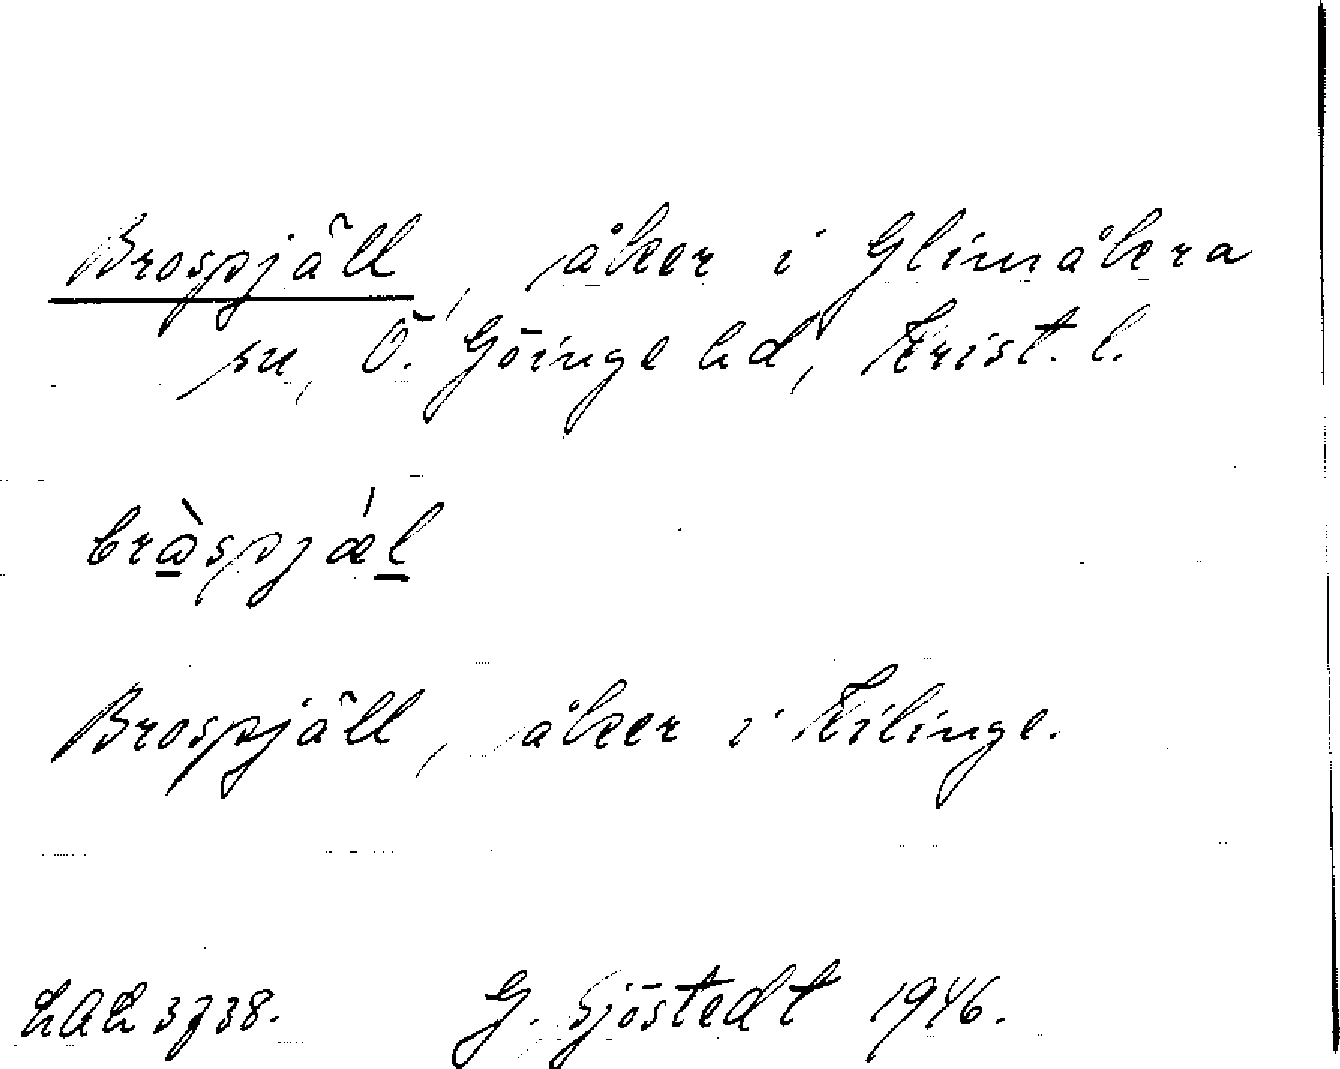 Brospjäll, åker i Glimåkra
sn, Ö. Göinge hd, Krist. l.
bràspjǽl
Brospjäll, åker i Kilinge.
LAL 3738. G. Sjöstedt 1946.